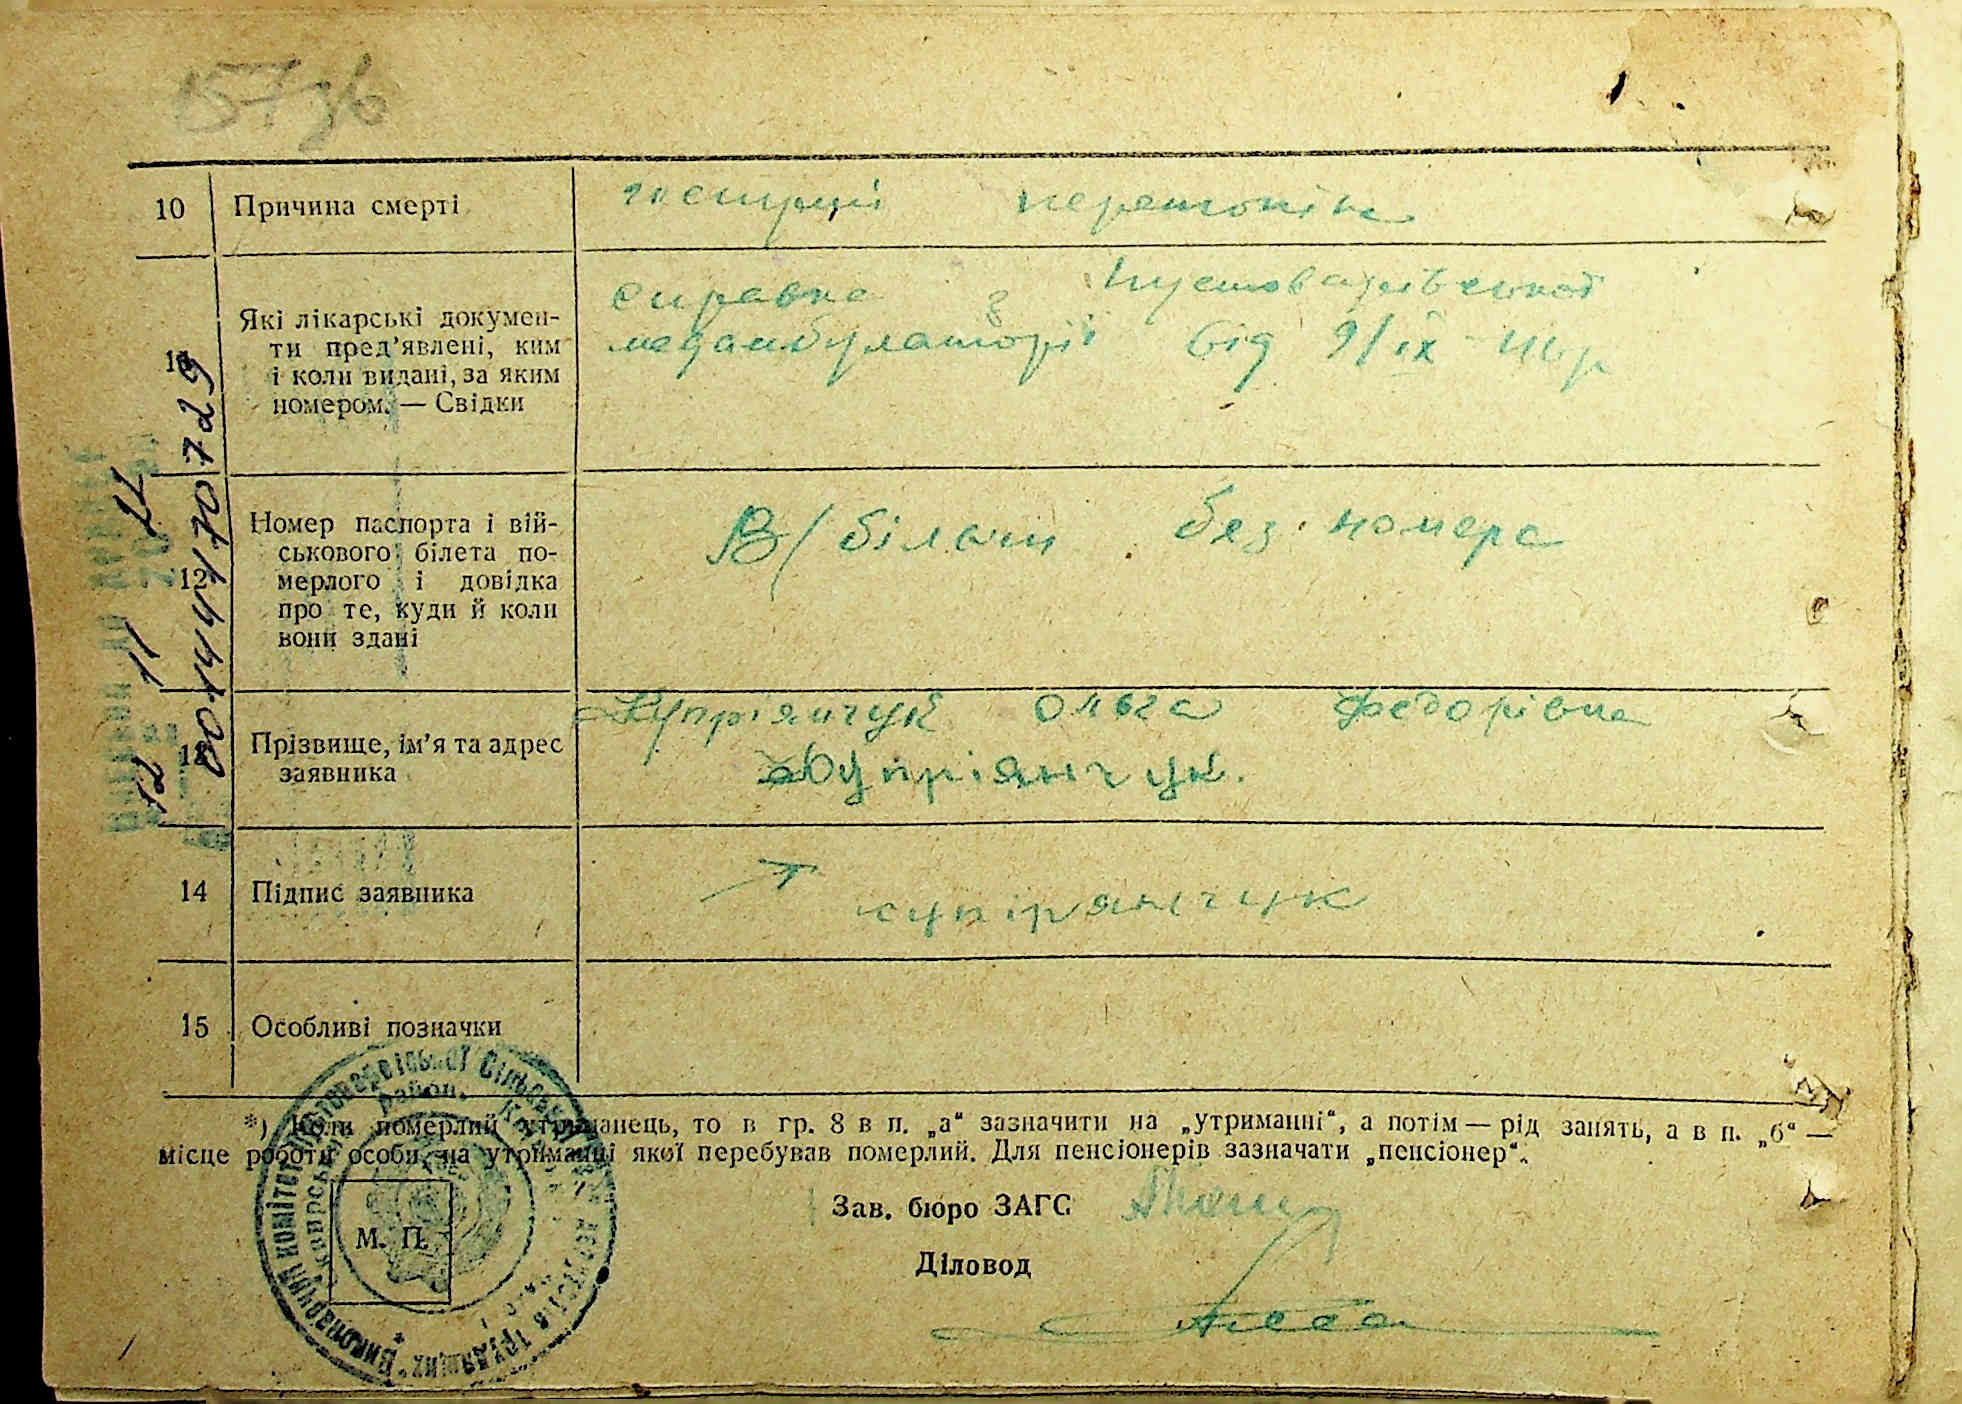 157 зв
10 Причина смерті
Які лікарські докумен-
ти пред’явлені, ким
і коли видані, за яким
номером. — Свідки
справка з Пустоварівської
медамбулаторії від 9/ІХ
00144170729
12 Номер паспорта і вій-
ськового білета по-
мерлого і довідка
про те, куди й коли
вони здані
В/ білет без номера
13 Прізвище, ім’я та адрес
заявника
Купріянчук Ольга Федорівна
Купріянчук.
14 Підпис заявника
купірянчук
15 Особливі позначки
*) Коли померлий утриманець, то в гр. 8 в п. „а“ зазначити на „утриманні“, а потім — рід занять, а в п. „б“ —
місце роботи особи, на утриманні якої перебував померлий. Для пенсіонерів зазначати „пенсіонер“.
Зав. бюро ЗАГС
М. П.
Діловод
Виконавчий комітет Сільської депутатів трудящих
район.